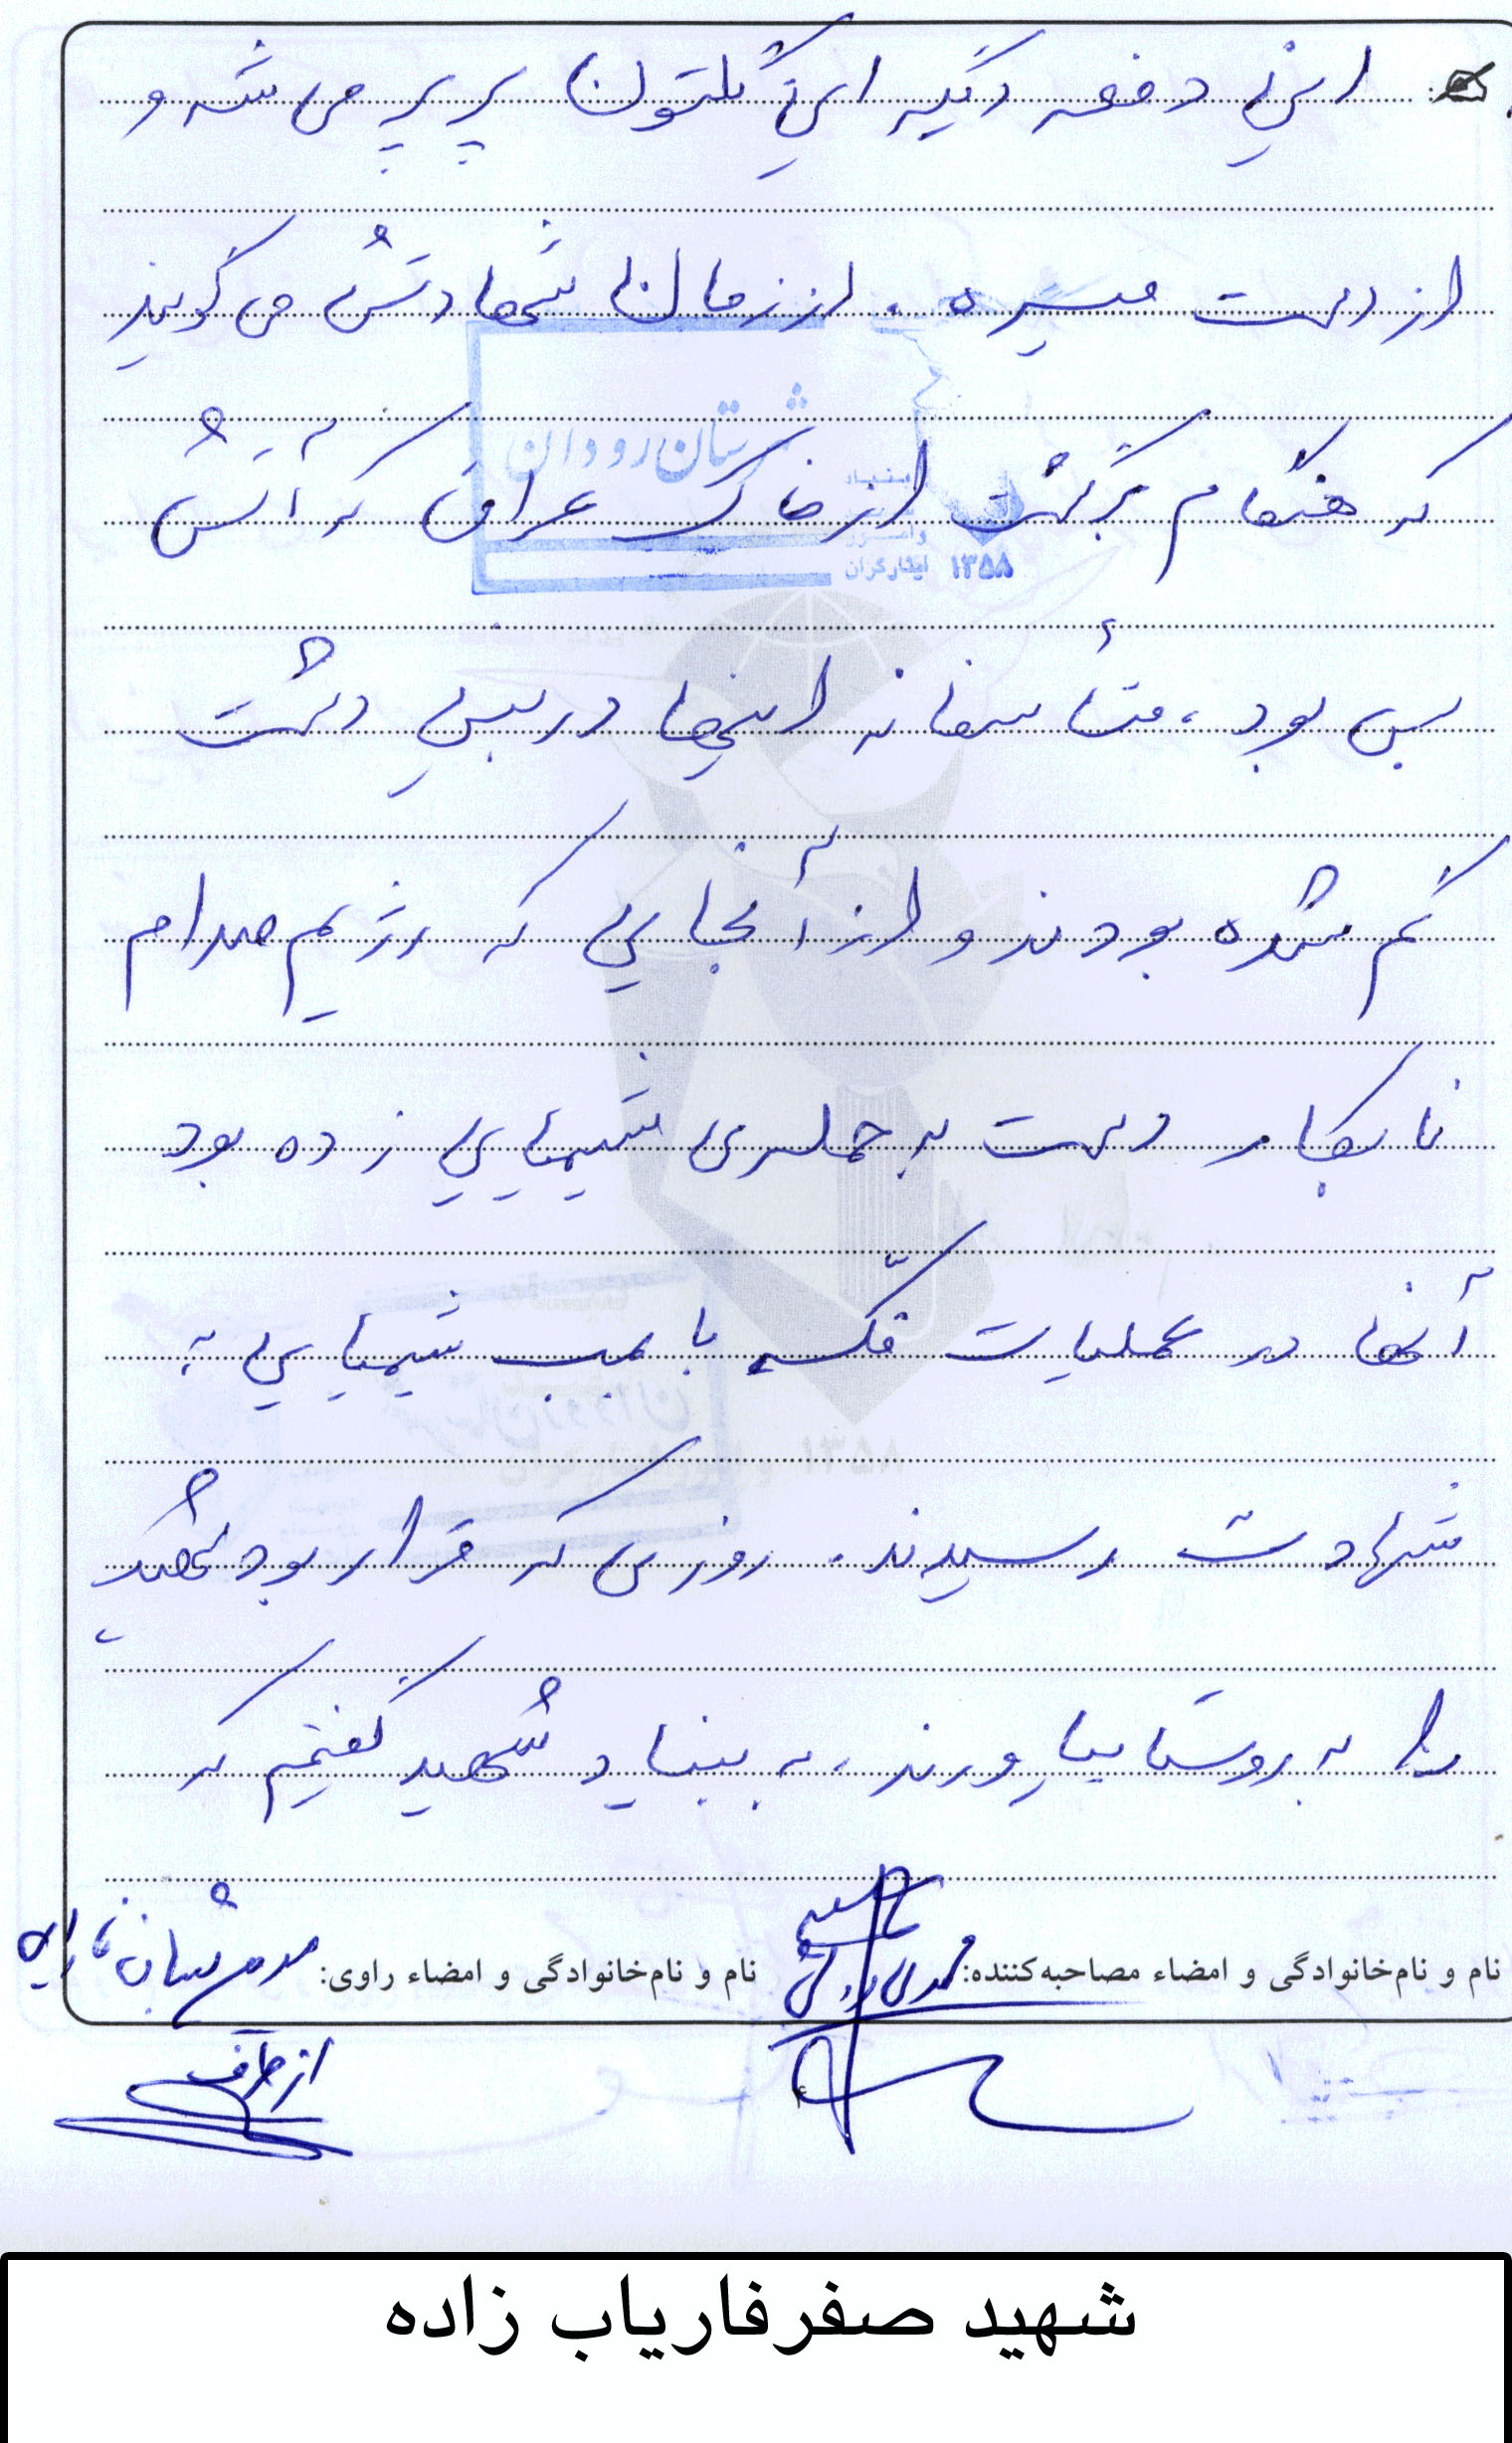 این دفعه دیگه این گلتون پر پر می شه و
از دست میره . از زمان شهادتش می گویند
که هنگام برگشت از خاک عراق که آتش
بس بود ، متأسفانه اینها در بین دشت
گم شده بودند و از آنجایی که رژیم صدام
نابکار دست به حمله‌ی شیمیایی زده بود
آنها در عملیات فکه با بمب شیمیایی به
شهادت رسیدند . روزی که قرار بود شهید
را به روستا بیاورند ، به بنیاد شهید گفتیم که
شهرستان رودان
بنیاد
ایثارگران ۱۳۵۸
نام و نام‌خانوادگی و امضاء مصاحبه‌کننده: نام و نام‌خانوادگی و امضاء راوی:
از طرف
۴
شهید صفرفاریاب زاده